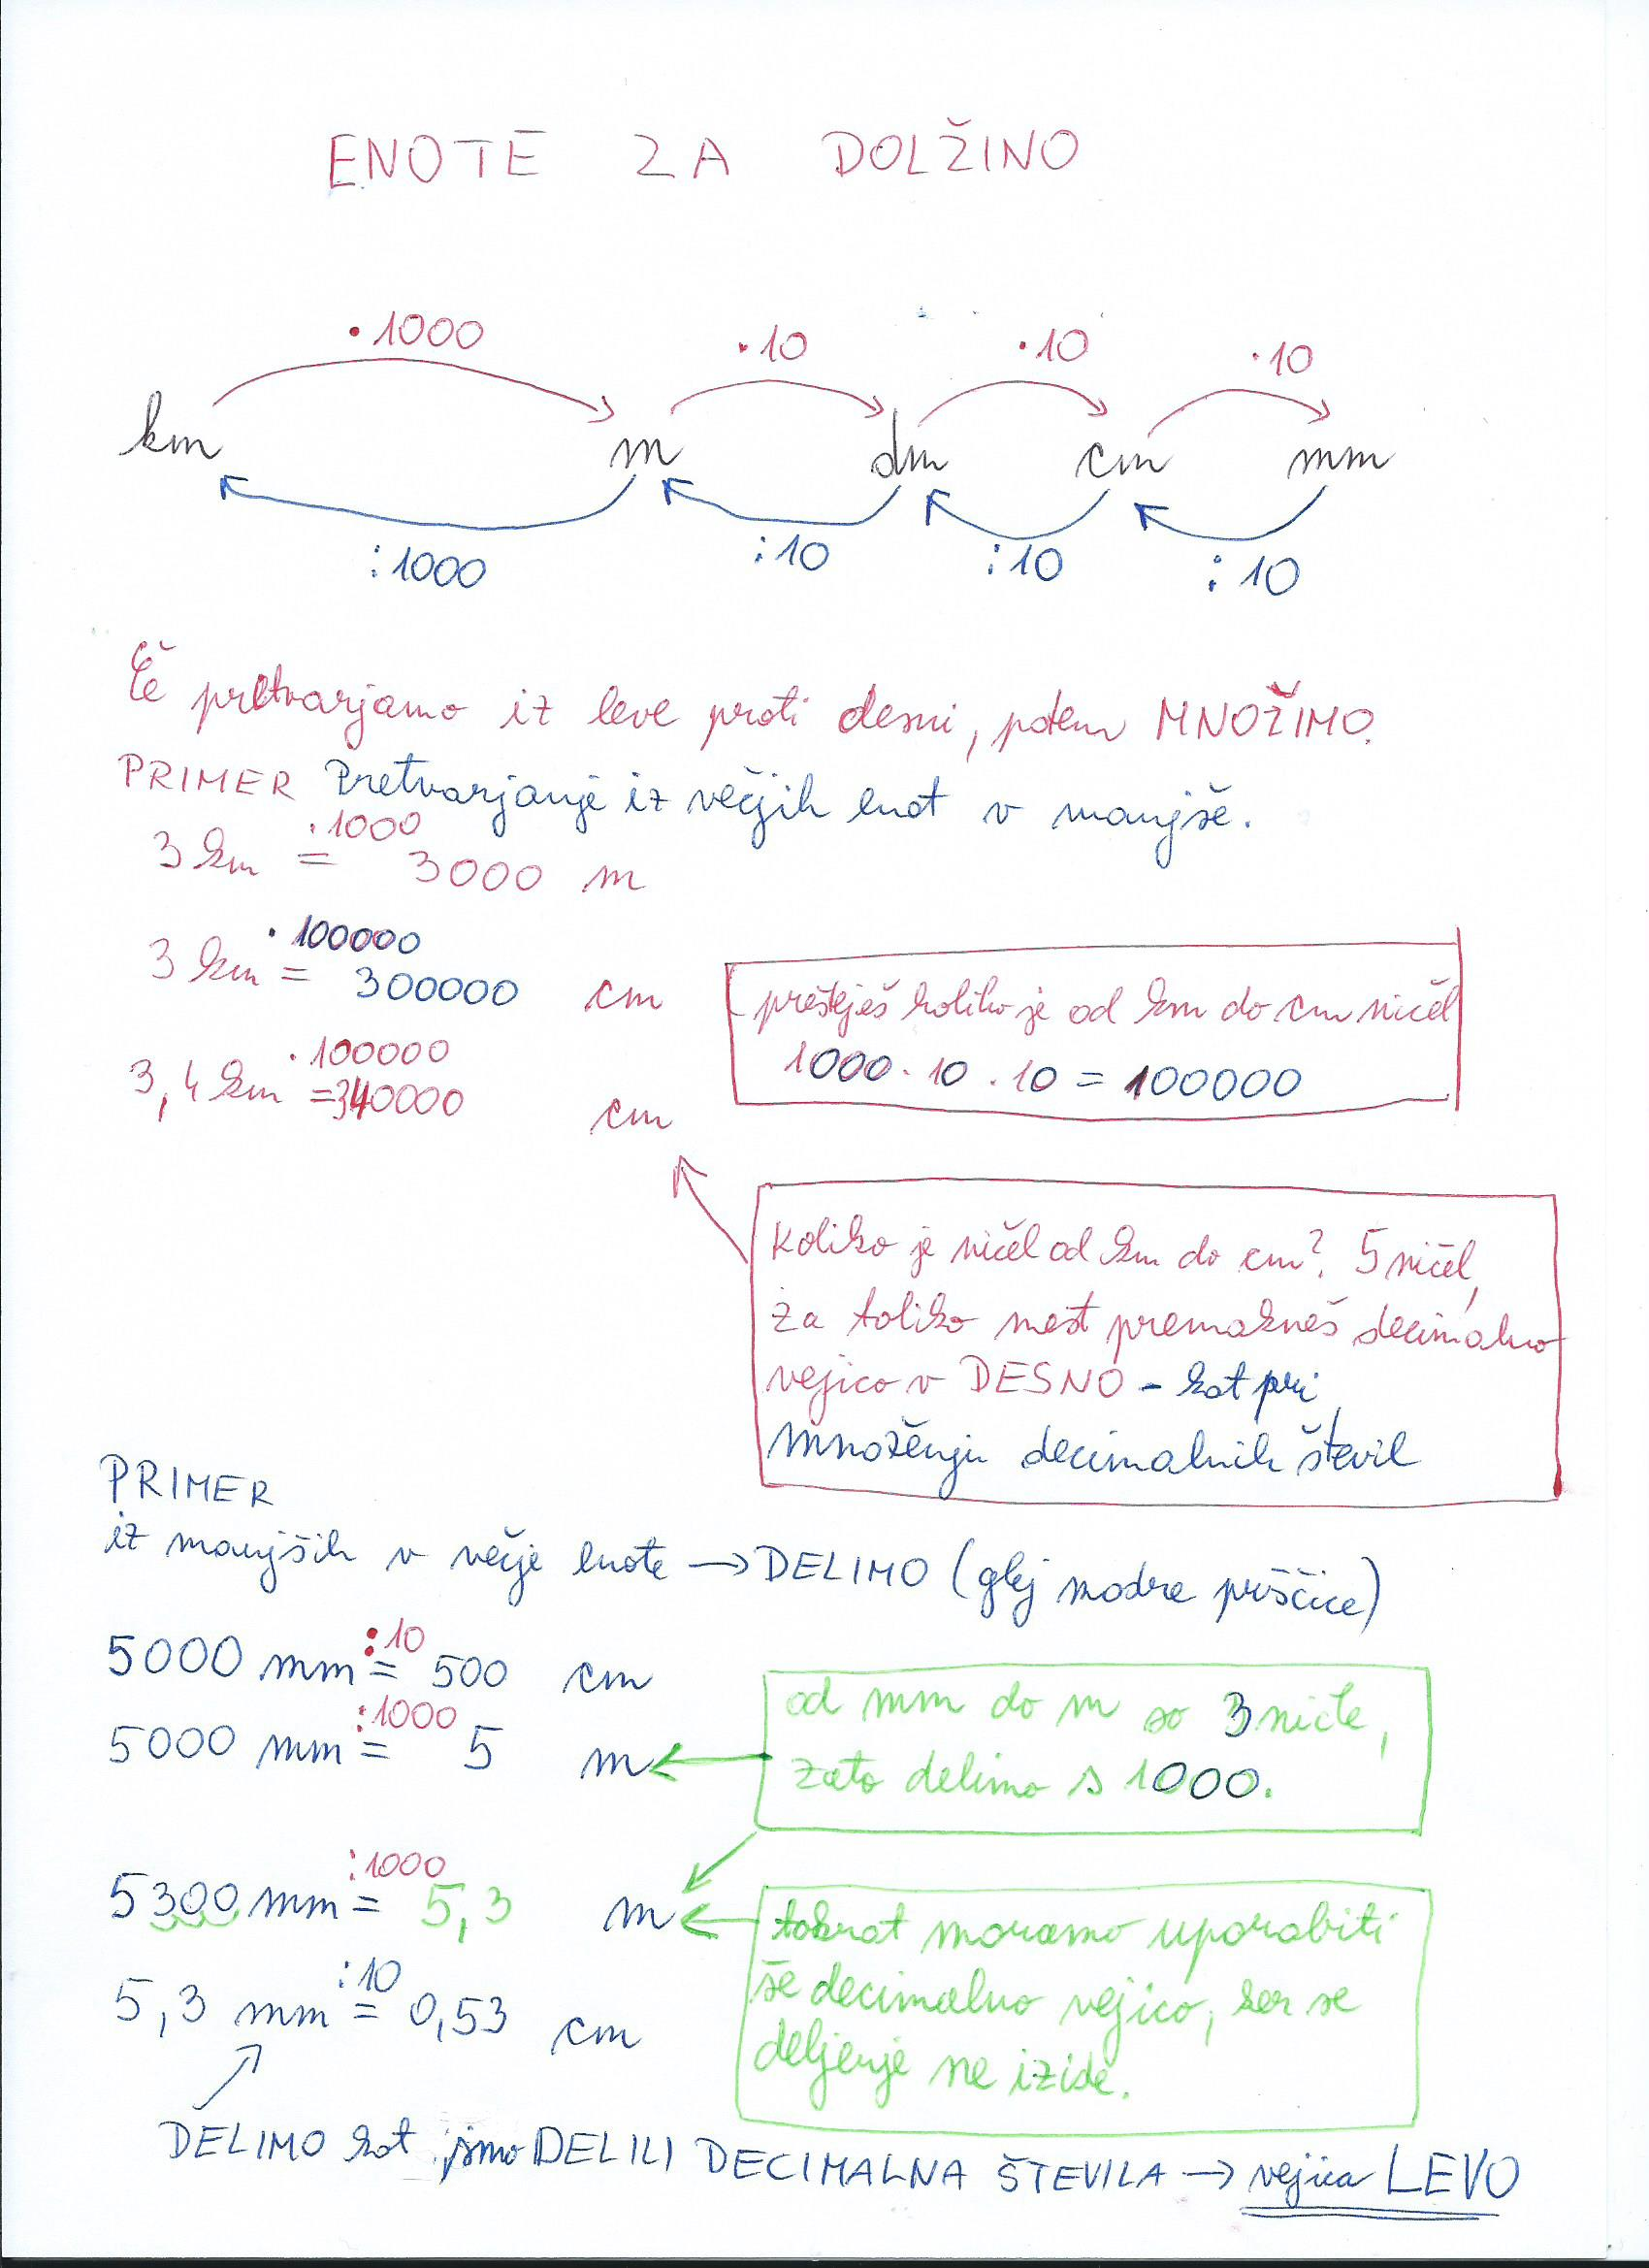 ENOTE ZA DOLŽINO
·1000 ·10 ·10 ·10
km m dm cm mm
:1000 :10 :10 :10
Če pretvarjamo iz leve proti desni, potem MNOŽIMO.
PRIMER Pretvarjanje iz večjih enot v manjše.
·1000
3 km = 3000 m
·100000
3 km = 300000 cm
prešteješ koliko je od km do cm ničel
1000 · 10 · 10 = 100000
·100000
3,4 km = 340000 cm
Koliko je ničel od km do cm? 5 ničel,
za toliko mest premakneš decimalno
vejico v DESNO - kot pri
množenju decimalnih števil
PRIMER
iz manjših v večje enote → DELIMO (glej modre puščice)
:10
5000 mm = 500 cm
:1000
5000 mm = 5 m
od mm do m so 3 ničle,
zato delimo s 1000.
:1000
5300 mm = 5,3 m
tokrat moramo uporabiti
še decimalno vejico, ker se
deljenje ne izide.
:10
5,3 mm = 0,53 cm
DELIMO kot smo DELILI DECIMALNA ŠTEVILA → vejica LEVO